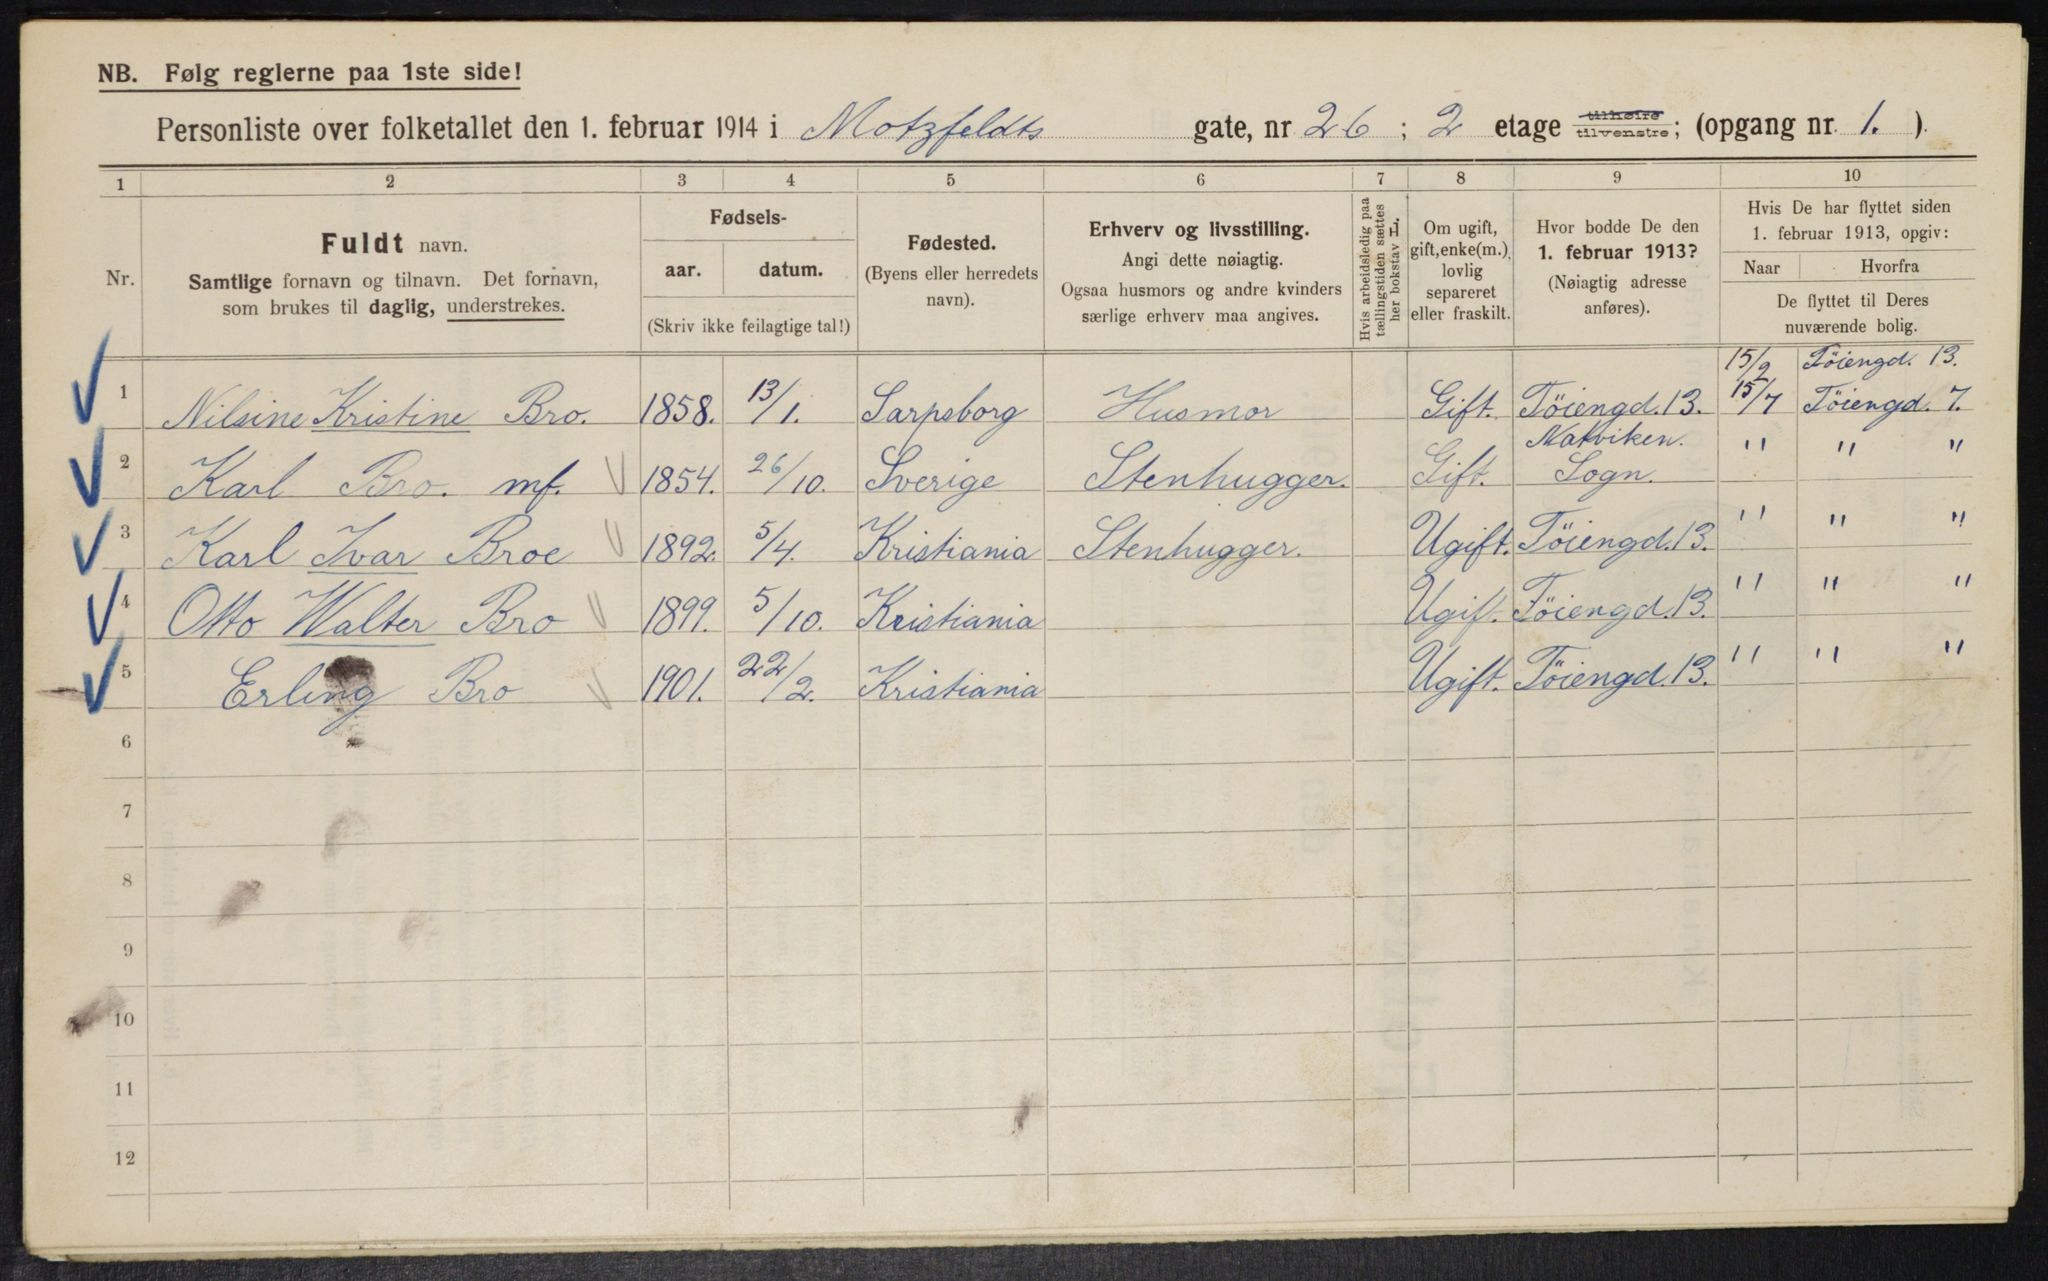 NB. Følg reglerne paa 1ste side!
Personliste over folketallet den 1. februar 1914 i Motzfeldts gate, nr 26 ; 2 etage tilhøire tilvenstre; (opgang nr. 1. ).
1 2 3 4 5 6 7 8 9 10
Nr.
Fuldt navn.
Samtlige fornavn og tilnavn. Det fornavn,
som brukes til daglig, understrekes.
Fødsels-
aar. datum.
(Skriv ikke feilagtige tal!)
Fødested.
(Byens eller herredets
navn).
Erhverv og livsstilling.
Angi dette nøiagtig.
Ogsaa husmors og andre kvinders
særlige erhverv maa angives.
Hvis arbeidsledig paa
tællingstiden sættes
her bokstav L.
Om ugift,
gift, enke(m.),
lovlig
separeret
eller fraskilt.
Hvor bodde De den
1. februar 1913?
(Nøiagtig adresse
anføres).
Hvis De har flyttet siden
1. februar 1913, opgiv:
Naar Hvorfra
De flyttet til Deres
nuværende bolig.
15/2 Töiengd. 13.
1 Nilsine Kristine Bro. 1858. 13/1. Sarpsborg Husmor Gift. Töiengd. 13. 15/7 Töiengd. 7.
2 Karl Bro. mf. 1854. 26/10. Sverige Stenhugger. Gift. Natviken. Sogn. " " "
3 Karl Ivar Broe 1892. 5/4. Kristiania Stenhugger. Ugift. Töiengd. 13. " " "
4 Otto Walter Bro 1899. 5/10. Kristiania Ugift. Töiengd. 13. " " "
5 Erling Bro 1901. 22/2. Kristiania Ugift. Töiengd. 13. " " "
6
7
8
9
10
11
12